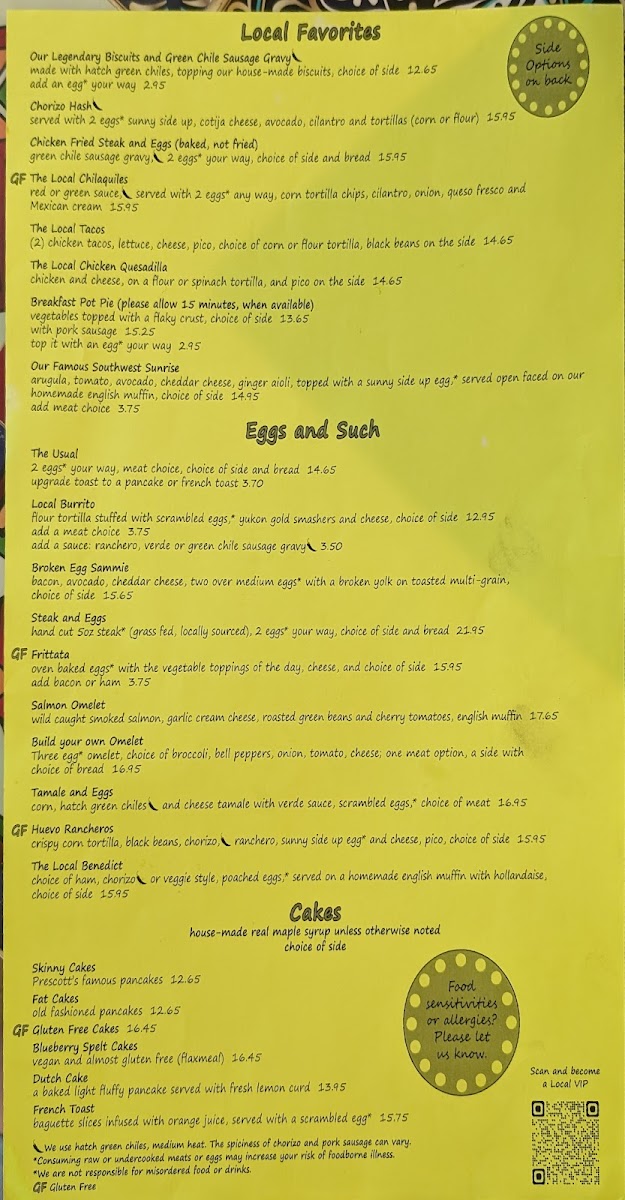 Local Favorites
Side
Options
on back
Our Legendary Biscuits and Green Chile Sausage Gravy
made with hatch green chiles, topping our house-made biscuits, choice of side 12.65
add an egg* your way 2.95
Chorizo Hash
served with 2 eggs* sunny side up, cotija cheese, avocado, cilantro and tortillas (corn or flour) 15.95
Chicken Fried Steak and Eggs (baked, not fried)
green chile sausage gravy, 2 eggs* your way, choice of side and bread 15.95
GF The Local Chilaquiles
red or green sauce, served with 2 eggs* any way, corn tortilla chips, cilantro, onion, queso fresco and
Mexican cream 15.95
The Local Tacos
(2) chicken tacos, lettuce, cheese, pico, choice of corn or flour tortilla, black beans on the side 14.65
The Local Chicken Quesadilla
chicken and cheese, on a flour or spinach tortilla, and pico on the side 14.65
Breakfast Pot Pie (please allow 15 minutes, when available)
vegetables topped with a flaky crust, choice of side 13.65
with pork sausage 15.25
top it with an egg* your way 2.95
Our Famous Southwest Sunrise
arugula, tomato, avocado, cheddar cheese, ginger aioli, topped with a sunny side up egg,* served open faced on our
homemade english muffin, choice of side 14.95
add meat choice 3.75
Eggs and Such
The Usual
2 eggs* your way, meat choice, choice of side and bread 14.65
upgrade toast to a pancake or french toast 3.70
Local Burrito
flour tortilla stuffed with scrambled eggs,* yukon gold smashers and cheese, choice of side 12.95
add a meat choice 3.75
add a sauce: ranchero, verde or green chile sausage gravy 3.50
Broken Egg Sammie
bacon, avocado, cheddar cheese, two over medium eggs* with a broken yolk on toasted multi-grain,
choice of side 15.65
Steak and Eggs
hand cut 5oz steak* (grass fed, locally sourced), 2 eggs* your way, choice of side and bread 21.95
GF Frittata
oven baked eggs* with the vegetable toppings of the day, cheese, and choice of side 15.95
add bacon or ham 3.75
Salmon Omelet
wild caught smoked salmon, garlic cream cheese, roasted green beans and cherry tomatoes, english muffin 17.65
Build your own Omelet
Three egg* omelet, choice of broccoli, bell peppers, onion, tomato, cheese; one meat option, a side with
choice of bread 16.95
Tamale and Eggs
corn, hatch green chiles and cheese tamale with verde sauce, scrambled eggs,* choice of meat 16.95
GF Huevo Rancheros
crispy corn tortilla, black beans, chorizo, ranchero, sunny side up egg* and cheese, pico, choice of side 15.95
The Local Benedict
choice of ham, chorizo or veggie style, poached eggs,* served on a homemade english muffin with hollandaise,
choice of side 15.95
Cakes
house-made real maple syrup unless otherwise noted
choice of side
Skinny Cakes
Prescott's famous pancakes 12.65
Fat Cakes
old fashioned pancakes 12.65
GF Gluten Free Cakes 16.45
Blueberry Spelt Cakes
vegan and almost gluten free (flaxmeal) 16.45
Dutch Cake
a baked light fluffy pancake served with fresh lemon curd 13.95
French Toast
baguette slices infused with orange juice, served with a scrambled egg* 15.75
Food
sensitivities
or allergies?
Please let
us know.
Scan and become
a Local VIP
We use hatch green chiles, medium heat. The spiciness of chorizo and pork sausage can vary.
*Consuming raw or undercooked meats or eggs may increase your risk of foodborne illness.
*We are not responsible for misordered food or drinks.
GF Gluten Free